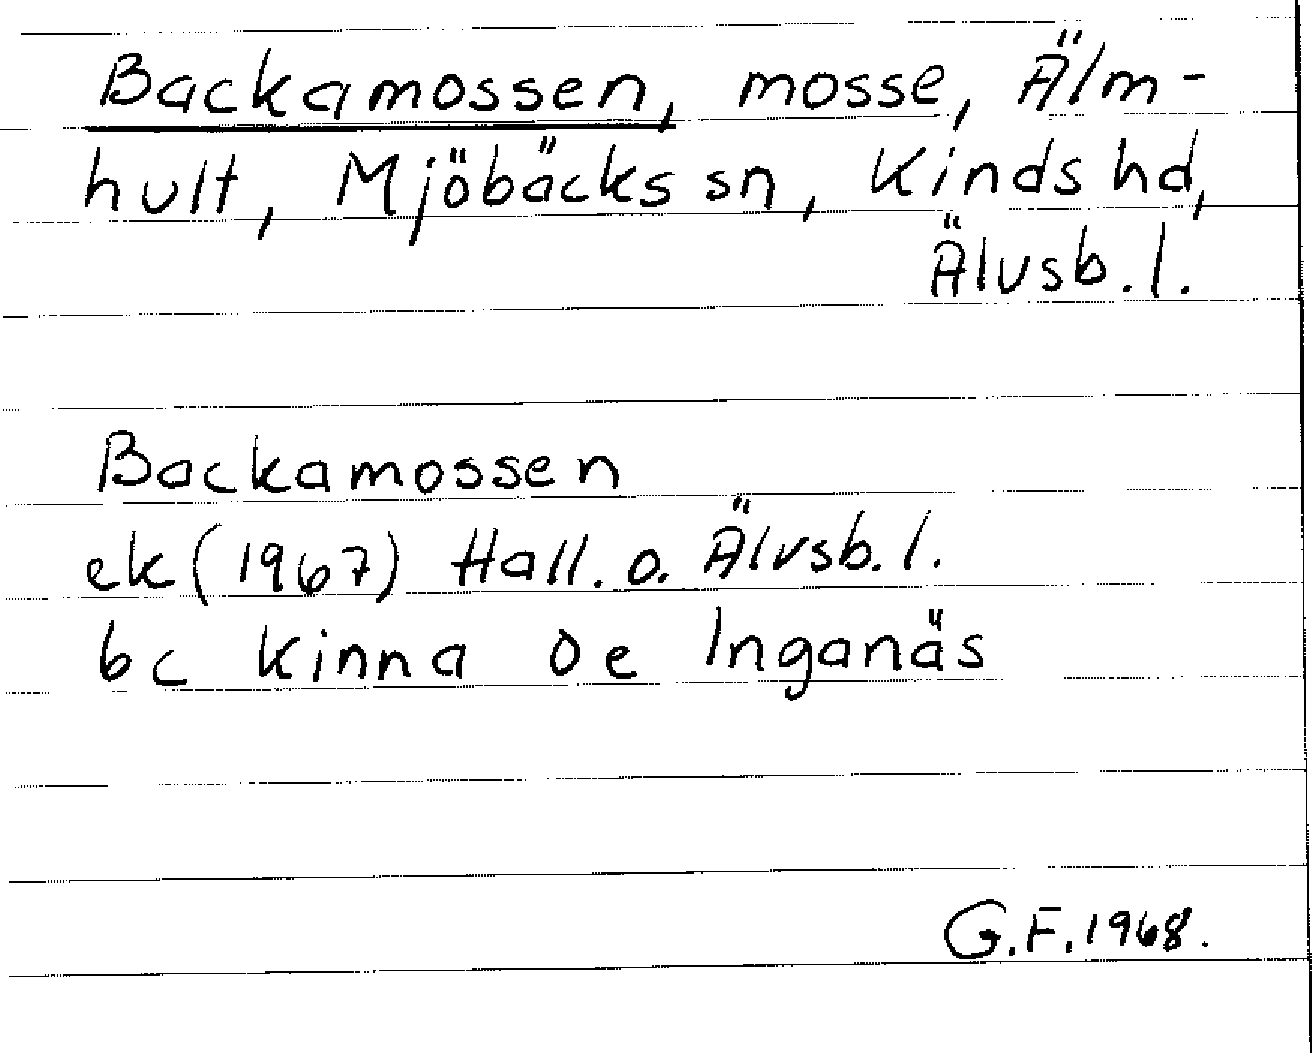 Backamossen, mosse, Älm-
hult, Mjöbäcks sn, Kinds hd,
Älvsb. l.
Backamossen
ek (1967) Hall. o. Älvsb. l.
bc Kinna öe Inganäs
G.F. 1968.